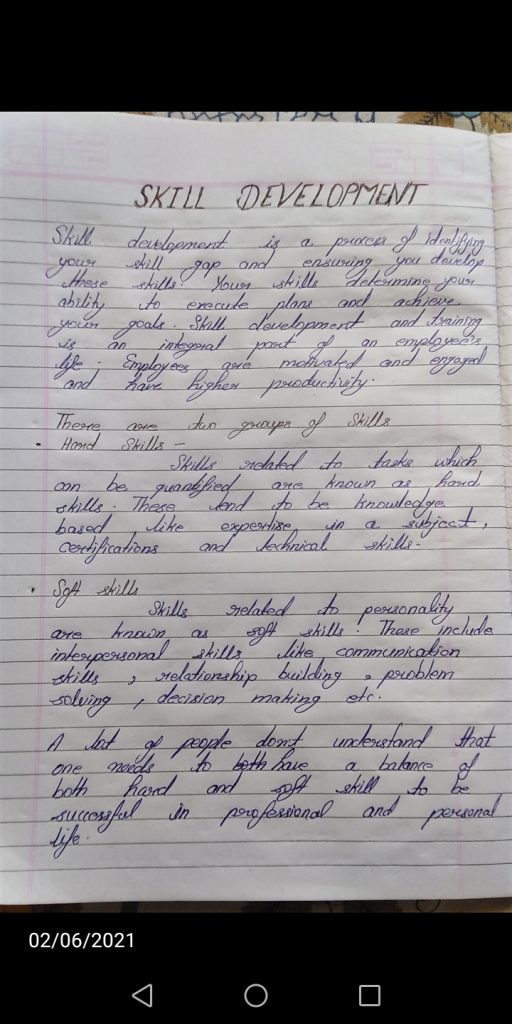 SKILL DEVELOPMENT
Skill development is a process of identifying
your skill gap and ensuring you develop
these skills. Your skills determine your
ability to execute plans and achieve
your goals. Skill development and training
is an integral part of an employee's
life. Employees are motivated and engaged
and have higher productivity.
There are two groups of Skills
• Hard Skills -
Skills related to tasks which
can be quantified are known as hard
skills. These tend to be knowledge
based like expertise in a subject,
certifications and technical skills.
• Soft skills
Skills related to personality
are known as soft skills. These include
interpersonal skills like communication
skills, relationship building, problem
solving, decision making etc.
A lot of people don't understand that
one needs to both have a balance of
both hard and soft skill to be
successful in professional and personal
life.
02/06/2021